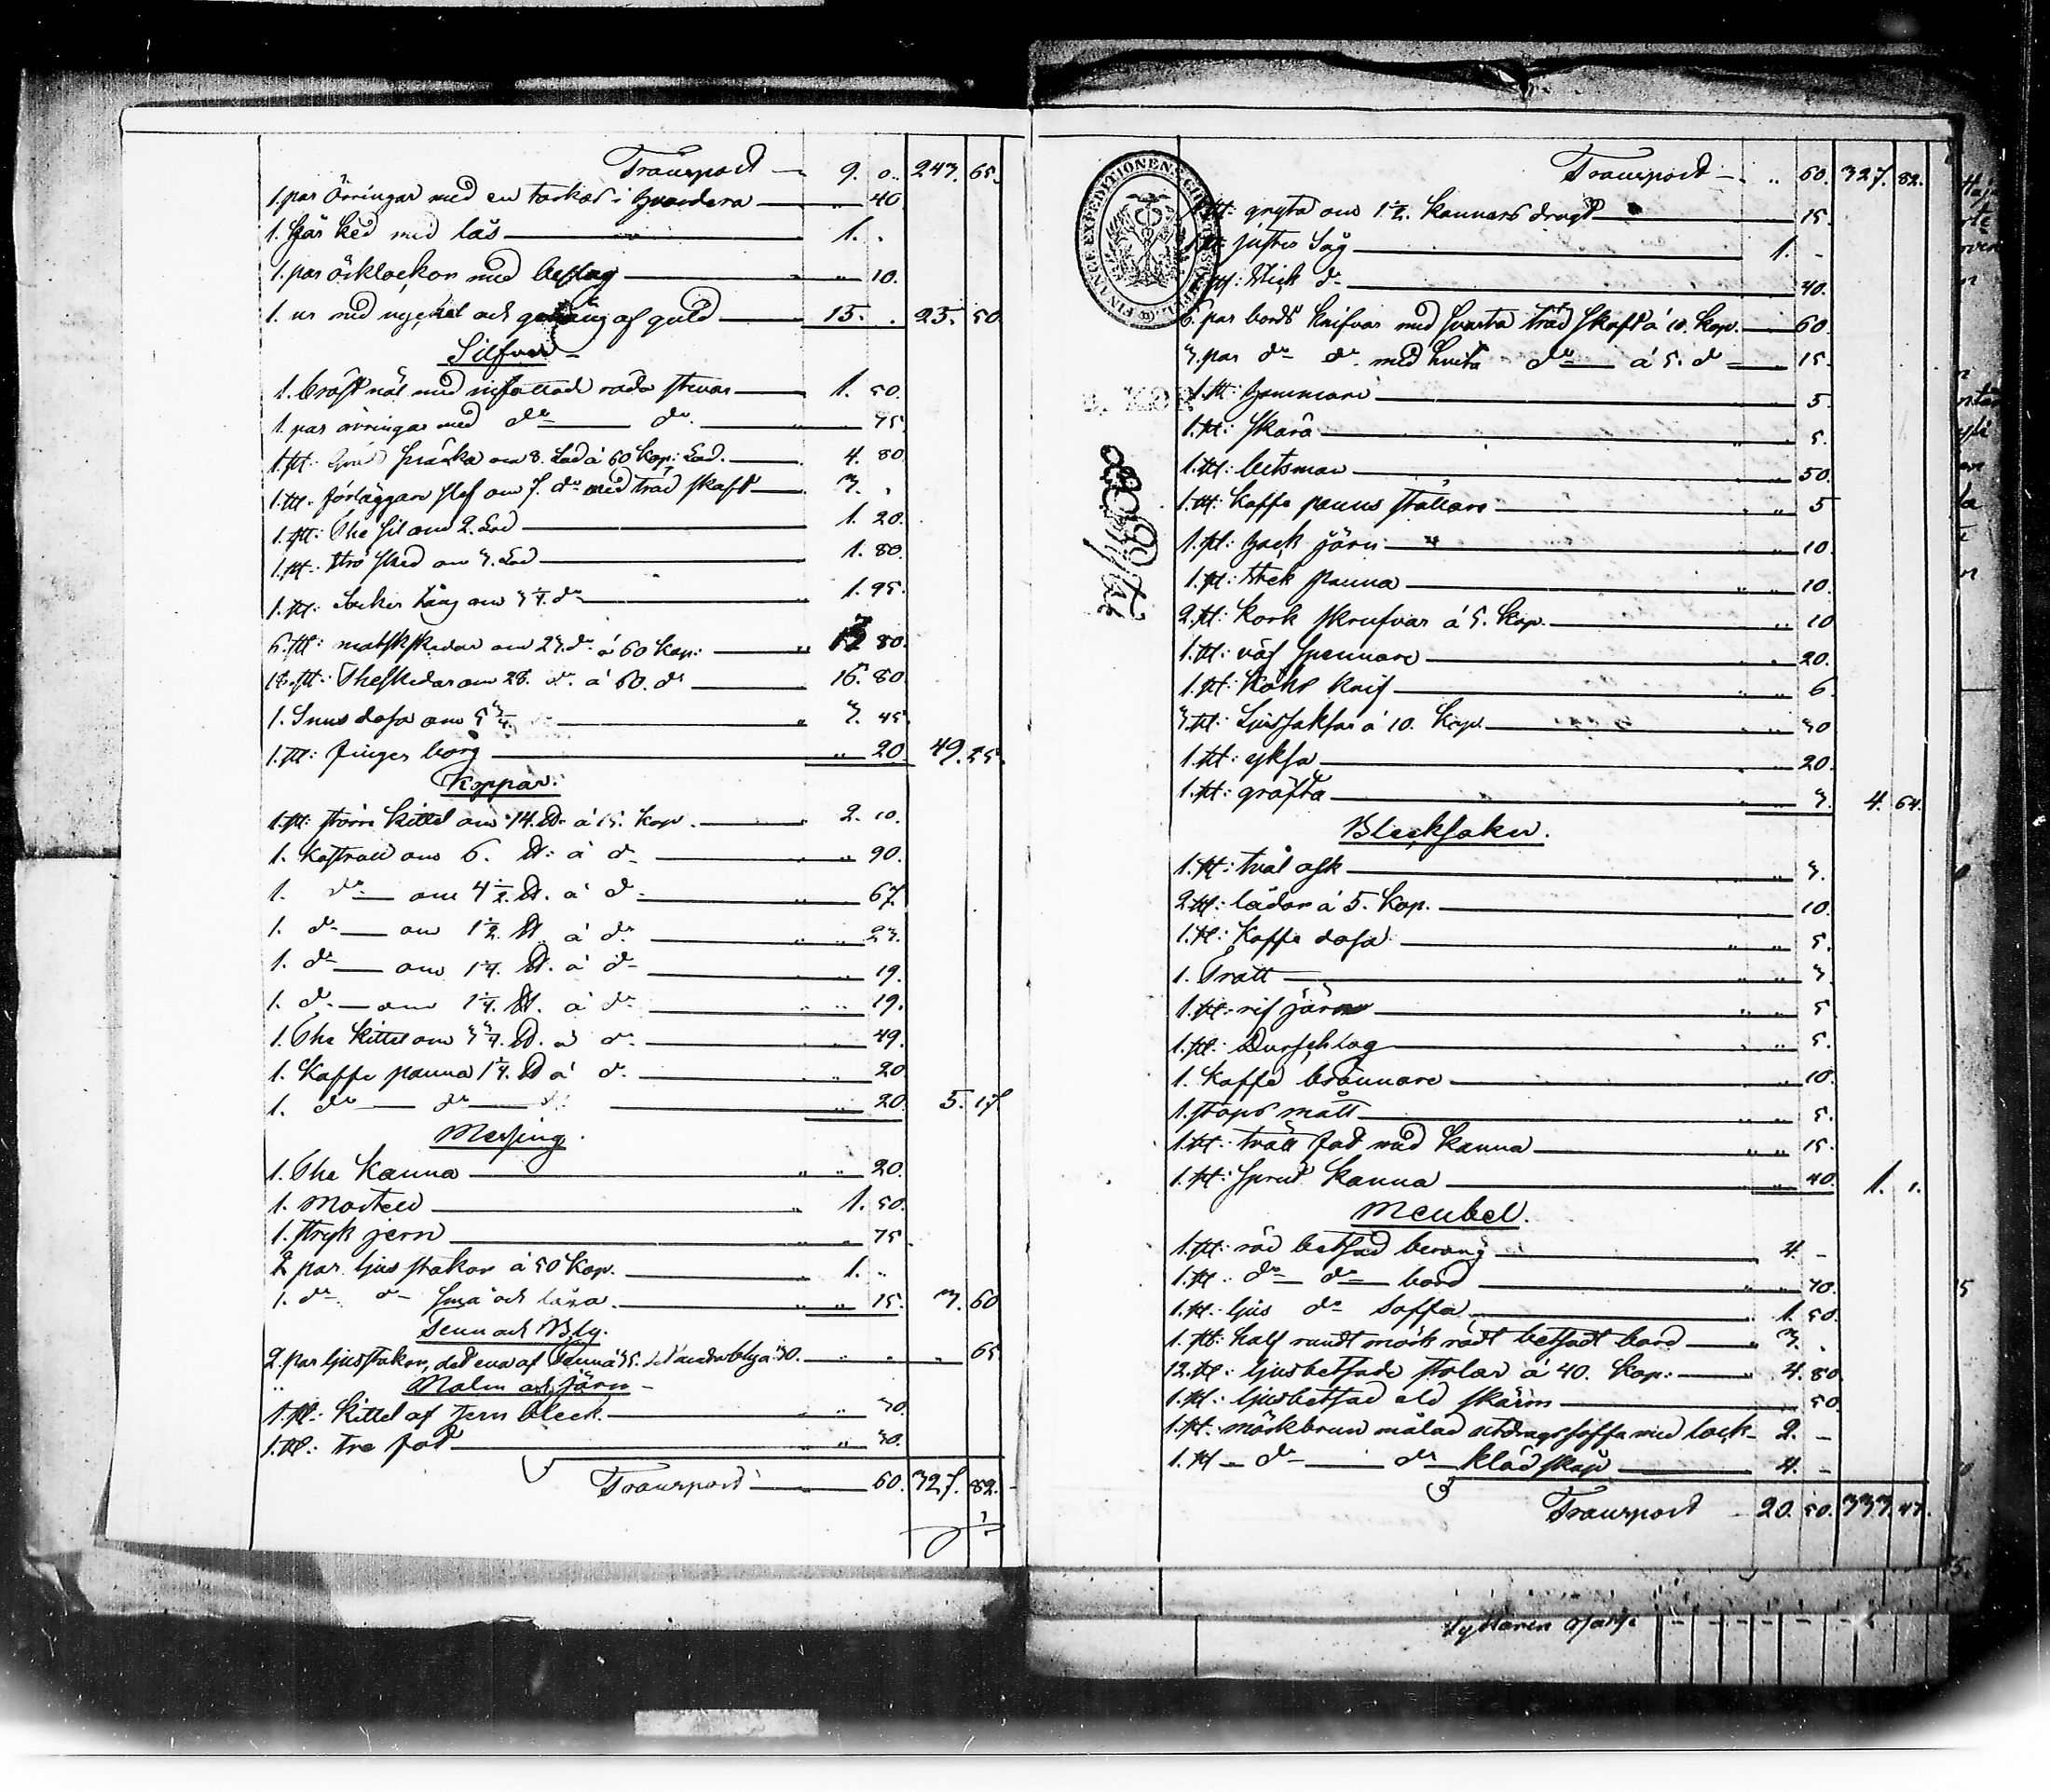 Transport — 9. 0.. 243. 65.
1. par örringar med en torkos i hvardera — .. 40.
1. hår ked med lås — 1. .
1. par örklockor med beslag — .. 10.
1. ur med nyckel och gehäng af guld — 15. . 25. 50.
Silfver
1. bröst nål med infattad röda stenar — 1. 50.
1. par örringar med do do — .. 75.
1. st: snäcka om 8. Lod à 60 Kop: Lod. — 4. 80.
1. st. förläggare slef om 7. do med träd skaft — 3. .
1. st: The sil om 2. Lod — 1. 20.
1. st: strö sked om 3. Lod — 1. 80.
1. st: socker tång om 3 1/4. do — 1. 95.
6. st: matskedar om 23. do à 60 Kop: — 13 80.
18. st: Theskedar om 28. do à 60. do — 16. 80.
1. Snus dosa om 5 3/4. — 3. 45.
1. st: finger borg — .. 20. 49. 25.
Koppar.
1. st: större kittel om 14. ℔ à 15. Kop. — 2. 10.
1. Kastrull om 6. ℔: à do — .. 90.
1. do — om 4 1/2. ℔. à do — .. 67.
1. do — om 1 1/2. ℔. à do — .. 23.
1. do — om 1 1/4. ℔. à do — .. 19.
1. do — om 1 1/4. ℔. à do — .. 19.
1. The kittel om 3 3/4. ℔. à do — .. 49.
1. Kaffe panna 1 1/4. ℔ à do — .. 20.
1. do — do — .. 20. 5. 17.
Messing.
1. The Kanna — .. 20.
1. Mortel — 1. 50.
1. stryk jern — .. 75.
2 par ljus stakar à 50 Kop. — 1. ..
1. do do små och låga. — .. 15. 3. 60.
Tenn och Bly.
2. par ljusstakar, det ena af Tenn à 35. det andra blyà 30. — .. .. .. 65.
Malm och Järn
1. st: kittel af jern bleck. — .. 30.
1. st: tre fot — .. 30.
Transport — 60. 327. 82.
Transport — .. 60. 327. 82.
1 st: gryta om 1 1/2. kannors dragt — 15.
1 st: justre såg — 1. -
1 st: stick do — 40.
6. par bords knifvar med svarta träd skaft à 10. Kop. — 60
3. par do do med hvita do — à 5. do — 15.
1. st: hammare — 5.
1. st: skära — 5.
1. st: betsman — 50.
1. st: kaffe panns ställare — 5
1. st: hack järn — 10.
1. st: stek panna — 10.
2. st: kork skrufvar à 5. Kop. — 10
1. st: väf spennare — 20.
1. st: Köks knif — 6
3. st: Ljussaksar à 10. Kop. — 30
1. st: yksa — 20.
1. st: gräfta — 3. 4. 64.
Blecksaker.
1. st: tvål ask — 3.
2. st: lådor à 5. Kop. — 10.
1. st: kaffe dosa — 5.
1. Tratt — 3
1. st: rif järn — 5
1. st: Durschlag — 5.
1. kaffe brännare — 10.
1. stops mått — 5.
1. st: tvätt fad med kanna — 15.
1. st: sprut kanna — 40. 1. 1.
Meubel.
1. st: röd betsad — 4. -
1. st. do — do — bord — 70.
1. st: ljus do soffa — 1. 50.
1. st: half rundt mörk rödt betsadt bord — 3. .
12. st: ljusbetsade stolar à 40. Kop: — 4. 80.
1. st: ljusbetsad eld skärm — 50.
1. st: mörkbrun målad utdragssoffa med lock — 2. -
1. st — do — do klädskåp — 4. -
Transport 20. 50. 333. 47.